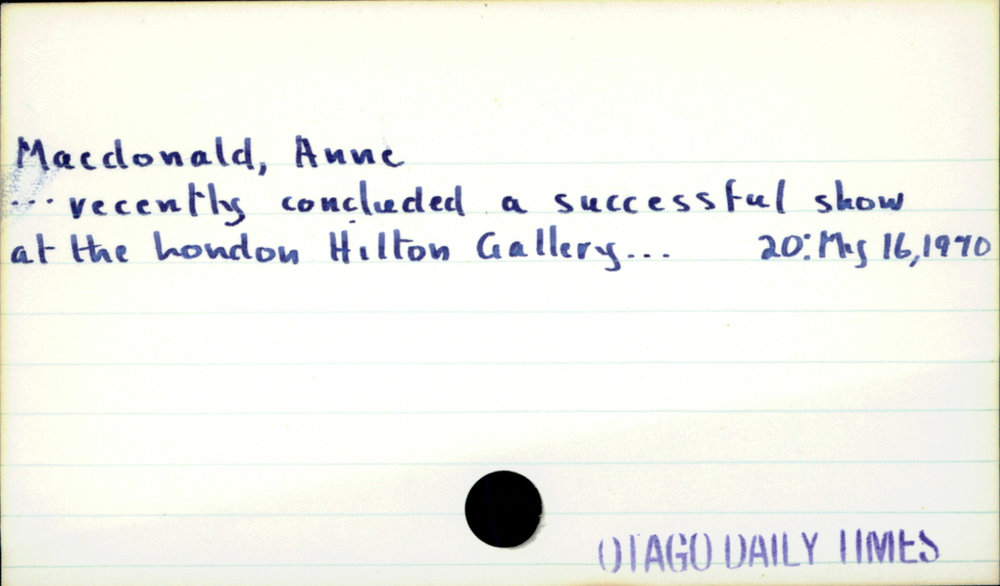 Macdonald, Anne
... recently concluded a successful show
at the London Hilton Gallery... 20: My 16, 1970
OTAGO DAILY TIMES